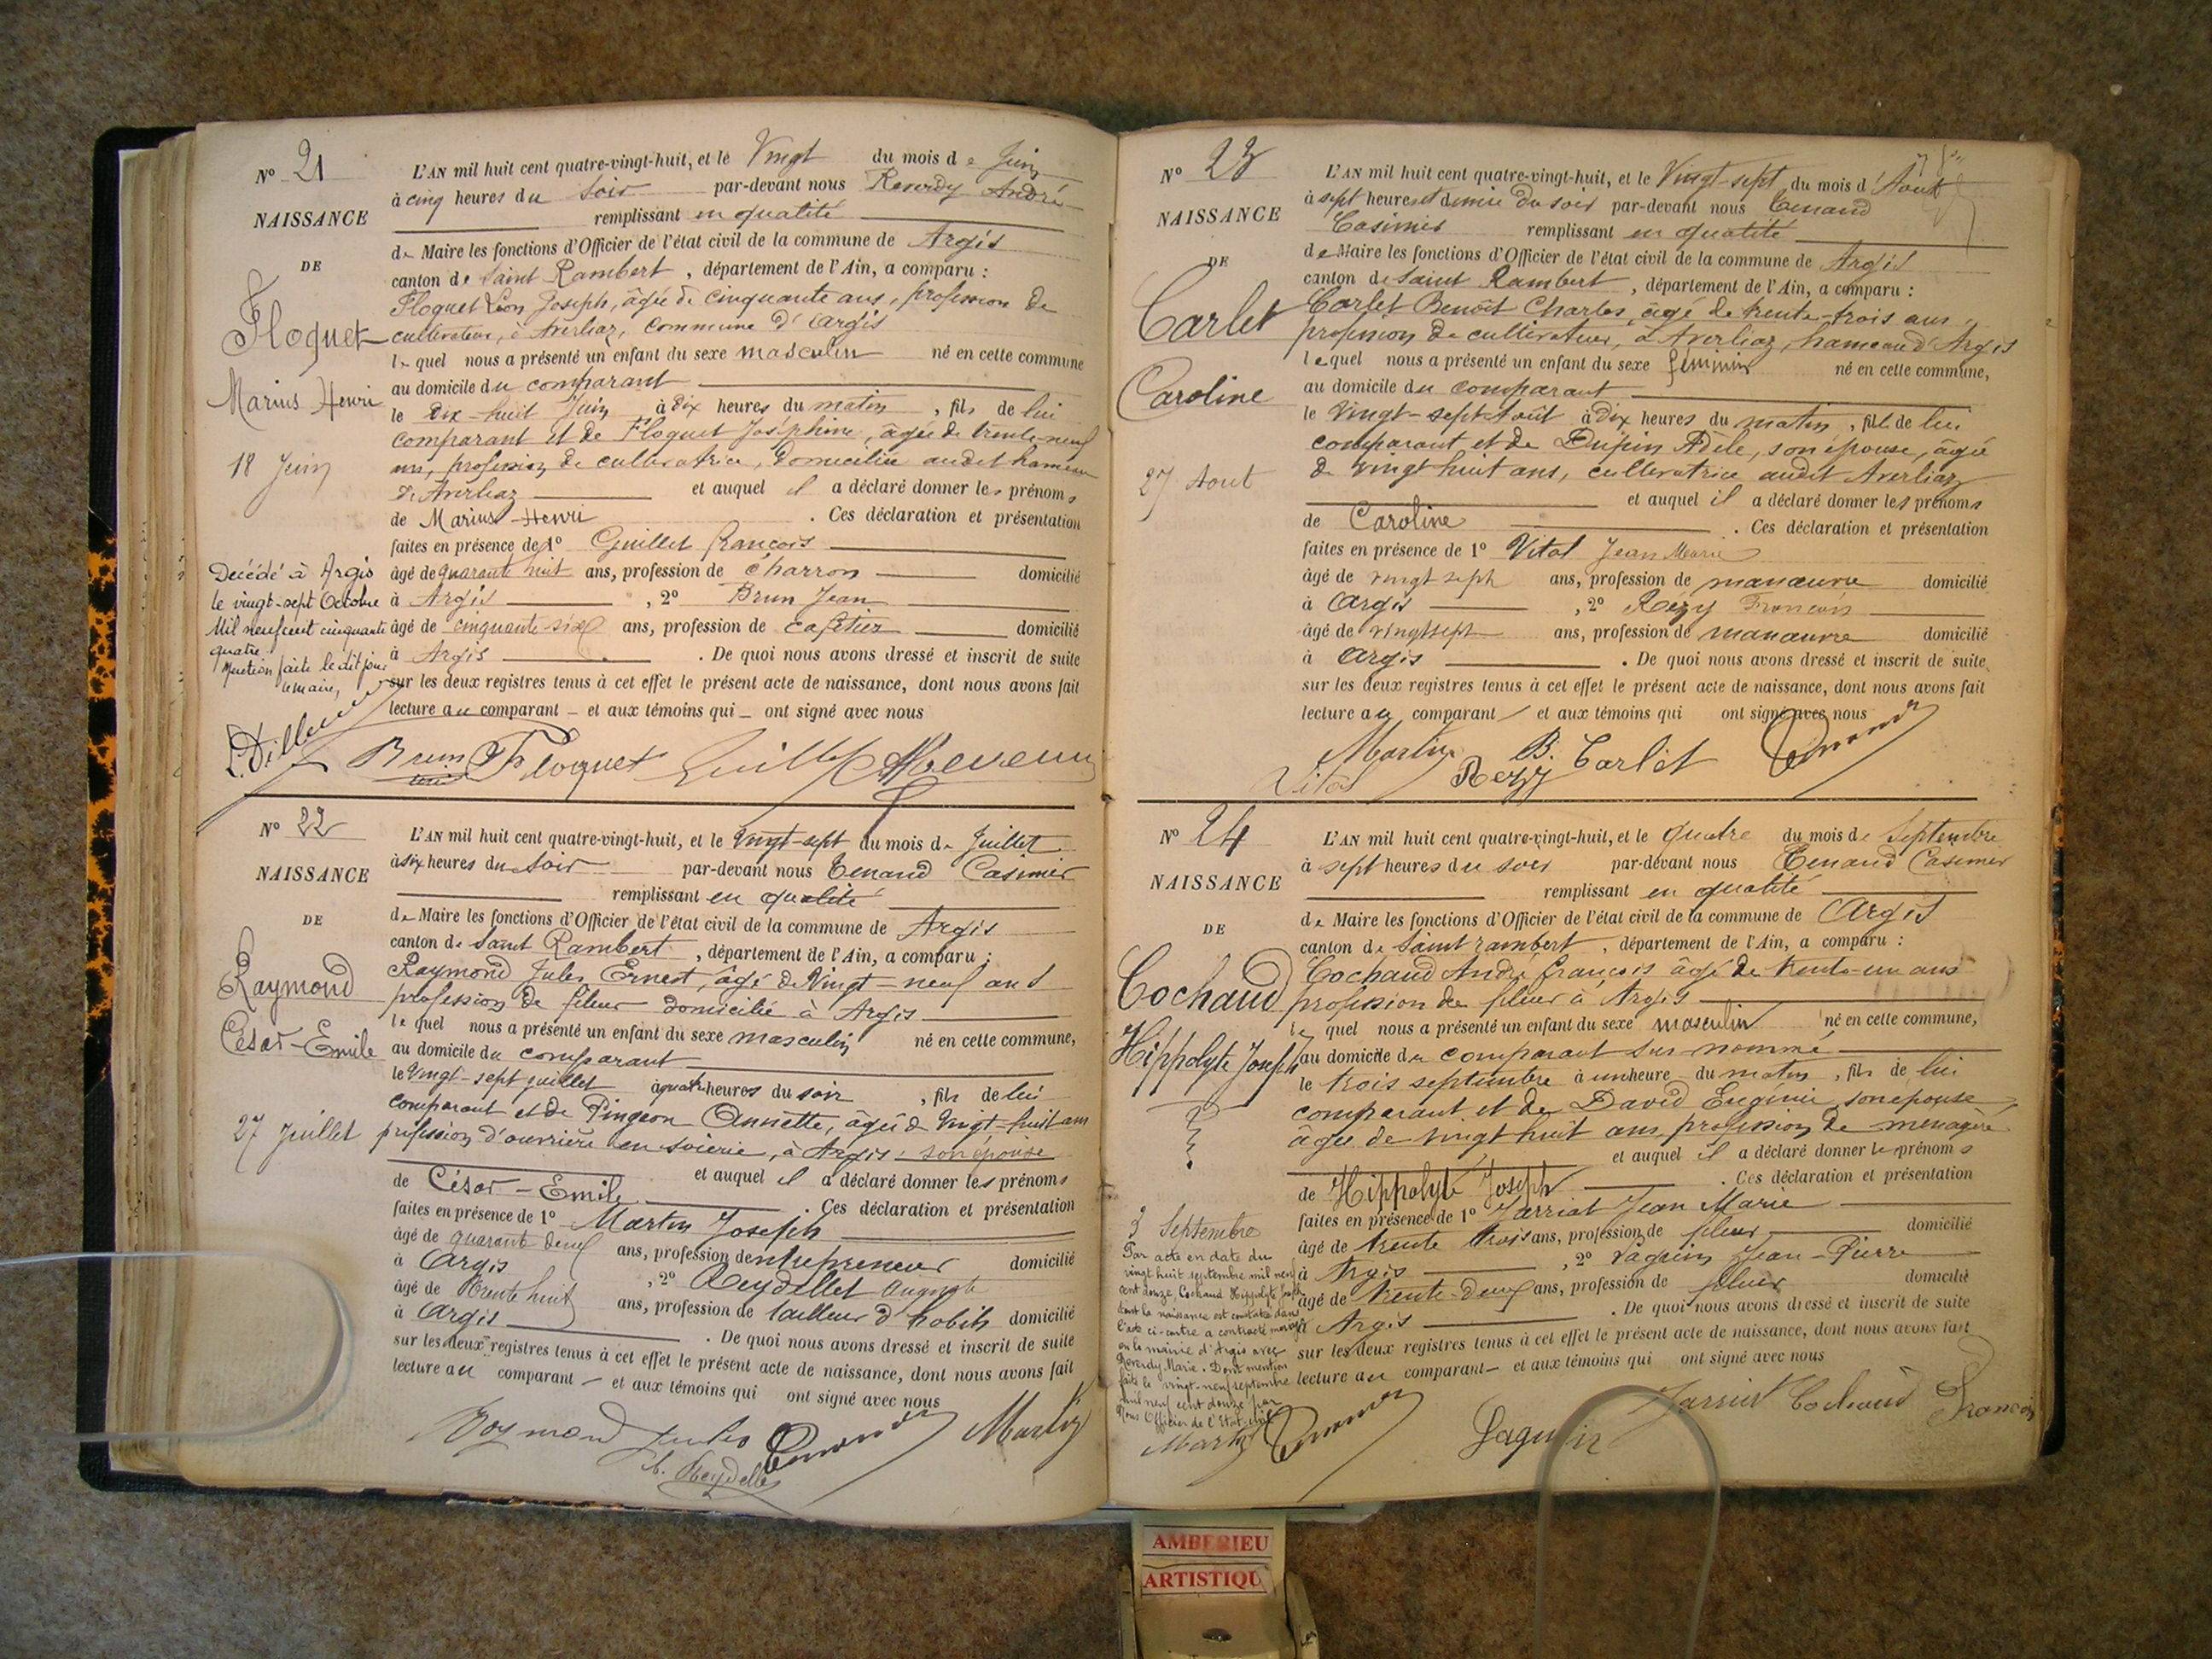 N° 21
NAISSANCE
DE
Floquet
Marius Henri
18 Juin
Décédé à Argis
le vingt-sept Octobre
Mil neuf cent cinquante
quatre
Mention faite le dit jour
le maire,
L'AN mil huit cent quatre-vingt-huit, et le Vingt du mois de Juin
à cinq heures du Soir par-devant nous Reverdy André
remplissant en qualité
de Maire les fonctions d'Officier de l'état civil de la commune de Argis
canton de Saint Rambert, département de l'Ain, a comparu :
Floquet Léon Joseph, âgée de cinquante ans, profession de
cultivateur, à Averliaz, commune d'Argis
lequel nous a présenté un enfant du sexe masculin né en cette commune
au domicile du comparant
le Dix-huit Juin à Dix heures du matin, fils de lui
comparant et de Floquet Joséphine, âgée de trente-neuf
ans, profession de cultivatrice, Domiciliée audit hameau
de Averliaz et auquel il a déclaré donner les prénoms
de Marius-Henri . Ces déclaration et présentation
faites en présence de 1° Guillet françois
âgé de quarante huit ans, profession de charron domicilié
à Argis , 2° Brun Jean
âgé de cinquante-six ans, profession de cafetier domicilié
à Argis . De quoi nous avons dressé et inscrit de suite
sur les deux registres tenus à cet effet le présent acte de naissance, dont nous avons fait
lecture au comparant - et aux témoins qui - ont signé avec nous
Brun Floquet Guillet
N° 22
NAISSANCE
DE
Raymond
César-Emile
27 Juillet
L'AN mil huit cent quatre-vingt-huit, et le Vingt-sept du mois de Juillet
à six heures du Soir par-devant nous Tenand Casimir
remplissant en qualité
de Maire les fonctions d'Officier de l'état civil de la commune de Argis
canton de Saint Rambert, département de l'Ain, a comparu :
Raymond Jules Ernest, âgé de Vingt-neuf ans
profession de fileur domicilié à Argis
lequel nous a présenté un enfant du sexe masculin né en cette commune,
au domicile du comparant
le Vingt-sept juillet à quatre heures du soir, fils de lui
comparant et de Pingeon Annette, âgée de Vingt-huit ans
profession d'ouvrière en soierie, à Argis, son épouse
et auquel il a déclaré donner les prénoms
de César-Emile . Ces déclaration et présentation
faites en présence de 1° Martin Joseph
âgé de quarante deux ans, profession d'entrepreneur domicilié
à Argis , 2° Reydellet Auguste
âgé de trente huit ans, profession de tailleur d'habits domicilié
à Argis . De quoi nous avons dressé et inscrit de suite
sur les deux registres tenus à cet effet le présent acte de naissance, dont nous avons fait
lecture au comparant - et aux témoins qui ont signé avec nous
Raymond Jules Tenand Martin
A. Reydellet
N° 23
NAISSANCE
DE
Carlet
Caroline
27 Aout
L'AN mil huit cent quatre-vingt-huit, et le Vingt-sept du mois d'Aout
à sept heures et demie du soir par-devant nous Tenand
Casimir remplissant en qualité
de Maire les fonctions d'Officier de l'état civil de la commune de Argis
canton de Saint Rambert, département de l'Ain, a comparu :
Carlet Benoît Charles, âgé de trente-trois ans,
profession de cultivateur, à Averliaz, hameau d'Argis
lequel nous a présenté un enfant du sexe féminin né en cette commune,
au domicile du comparant
le Vingt-sept Août à Dix heures du matin, fille de lui
comparant et de Dupin Adèle, son épouse, âgée
de vingt huit ans, cultivatrice audit Averliaz
et auquel il a déclaré donner les prénoms
de Caroline . Ces déclaration et présentation
faites en présence de 1° Vital Jean Marie
âgé de vingt sept ans, profession de manœuvre domicilié
à Argis , 2° Rézy François
âgé de vingt sept ans, profession de manœuvre domicilié
à Argis . De quoi nous avons dressé et inscrit de suite
sur les deux registres tenus à cet effet le présent acte de naissance, dont nous avons fait
lecture au comparant et aux témoins qui ont signé avec nous
Martin B. Carlet Tenand
Vital Rezy
N° 24
NAISSANCE
DE
Cochaud
Hippolyte Joseph
3 Septembre
Par acte en date du
vingt huit septembre mil neuf
cent douze Cochaud Hippolyte Joseph
dont la naissance est constatée dans
l'acte ci-contre a contracté mariage
en la mairie d'Argis avec
Reverdy Marie. Dont mention
faite le vingt-neuf septembre
mil neuf cent douze par
Nous Officier de l'Etat-civil
L'AN mil huit cent quatre-vingt-huit, et le quatre du mois de Septembre
à sept heures du soir par-devant nous Tenand Casimir
remplissant en qualité
de Maire les fonctions d'Officier de l'état civil de la commune de Argis
canton de Saint rambert, département de l'Ain, a comparu :
Cochaud André françois âgé de trente-un ans
profession de fileur à Argis
lequel nous a présenté un enfant du sexe masculin né en cette commune,
au domicile du comparant sus-nommé
le trois septembre à une heure du matin, fils de lui
comparant et de David Eugénie, son épouse,
âgée de vingt huit ans, profession de ménagère
et auquel il a déclaré donner les prénoms
de Hippolyte Joseph . Ces déclaration et présentation
faites en présence de 1° Jarriat Jean Marie
âgé de trente trois ans, profession de fileur domicilié
à Argis , 2° Laguin Jean-Pierre
âgé de trente-deux ans, profession de fileur domicilié
à Argis . De quoi nous avons dressé et inscrit de suite
sur les deux registres tenus à cet effet le présent acte de naissance, dont nous avons fait
lecture au comparant - et aux témoins qui ont signé avec nous
Jarriat Cochaud François
Martin Tenand Laguin
AMBERIEU
ARTISTIQU